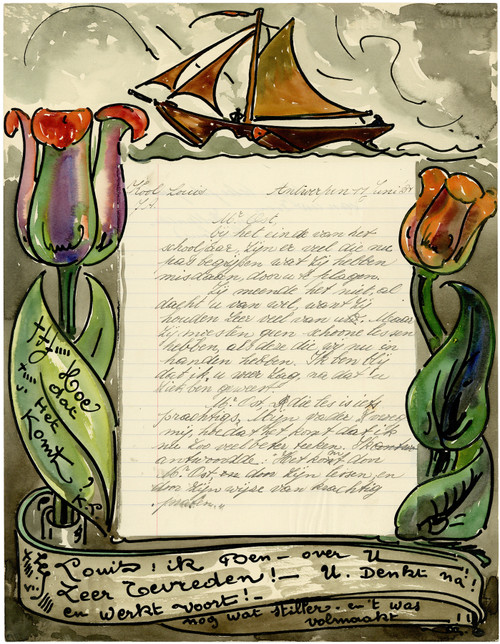 Kool Louis Antwerpen 11 Juni 31
Mr. Ost,
Bij het einde van het
schooljaar, zijn er veel die nu
pas begrijpen wat zij hebben
misdaan door u te plagen.
Zij meende het niet, al
dacht u van wel, want zij
houden zeer veel van u. Maar
zij moesten geen schoone lessen
hebben, als deze die wij nu in
handen hebben. Ik ben blij
dat ik u weer zag, na dat u
ziek ben geweest
Mr. Ost, die les is iets
prachtigs. Mijn vader vroeg
mij, hoe dat het komt dat ik
nu zoo veel beter teeken.
antwoordde: "Het komt door
Mr. Ost, en door zijn lessen, en
door zijn wijze van krachtig
praten."
Hoe
dat
Het
Komt
?
Louis! ik Ben - over U
Zeer Tevreden! - U. Denkt na!
en werkt voort! -
nog wat stiller. en 't was
volmaakt!